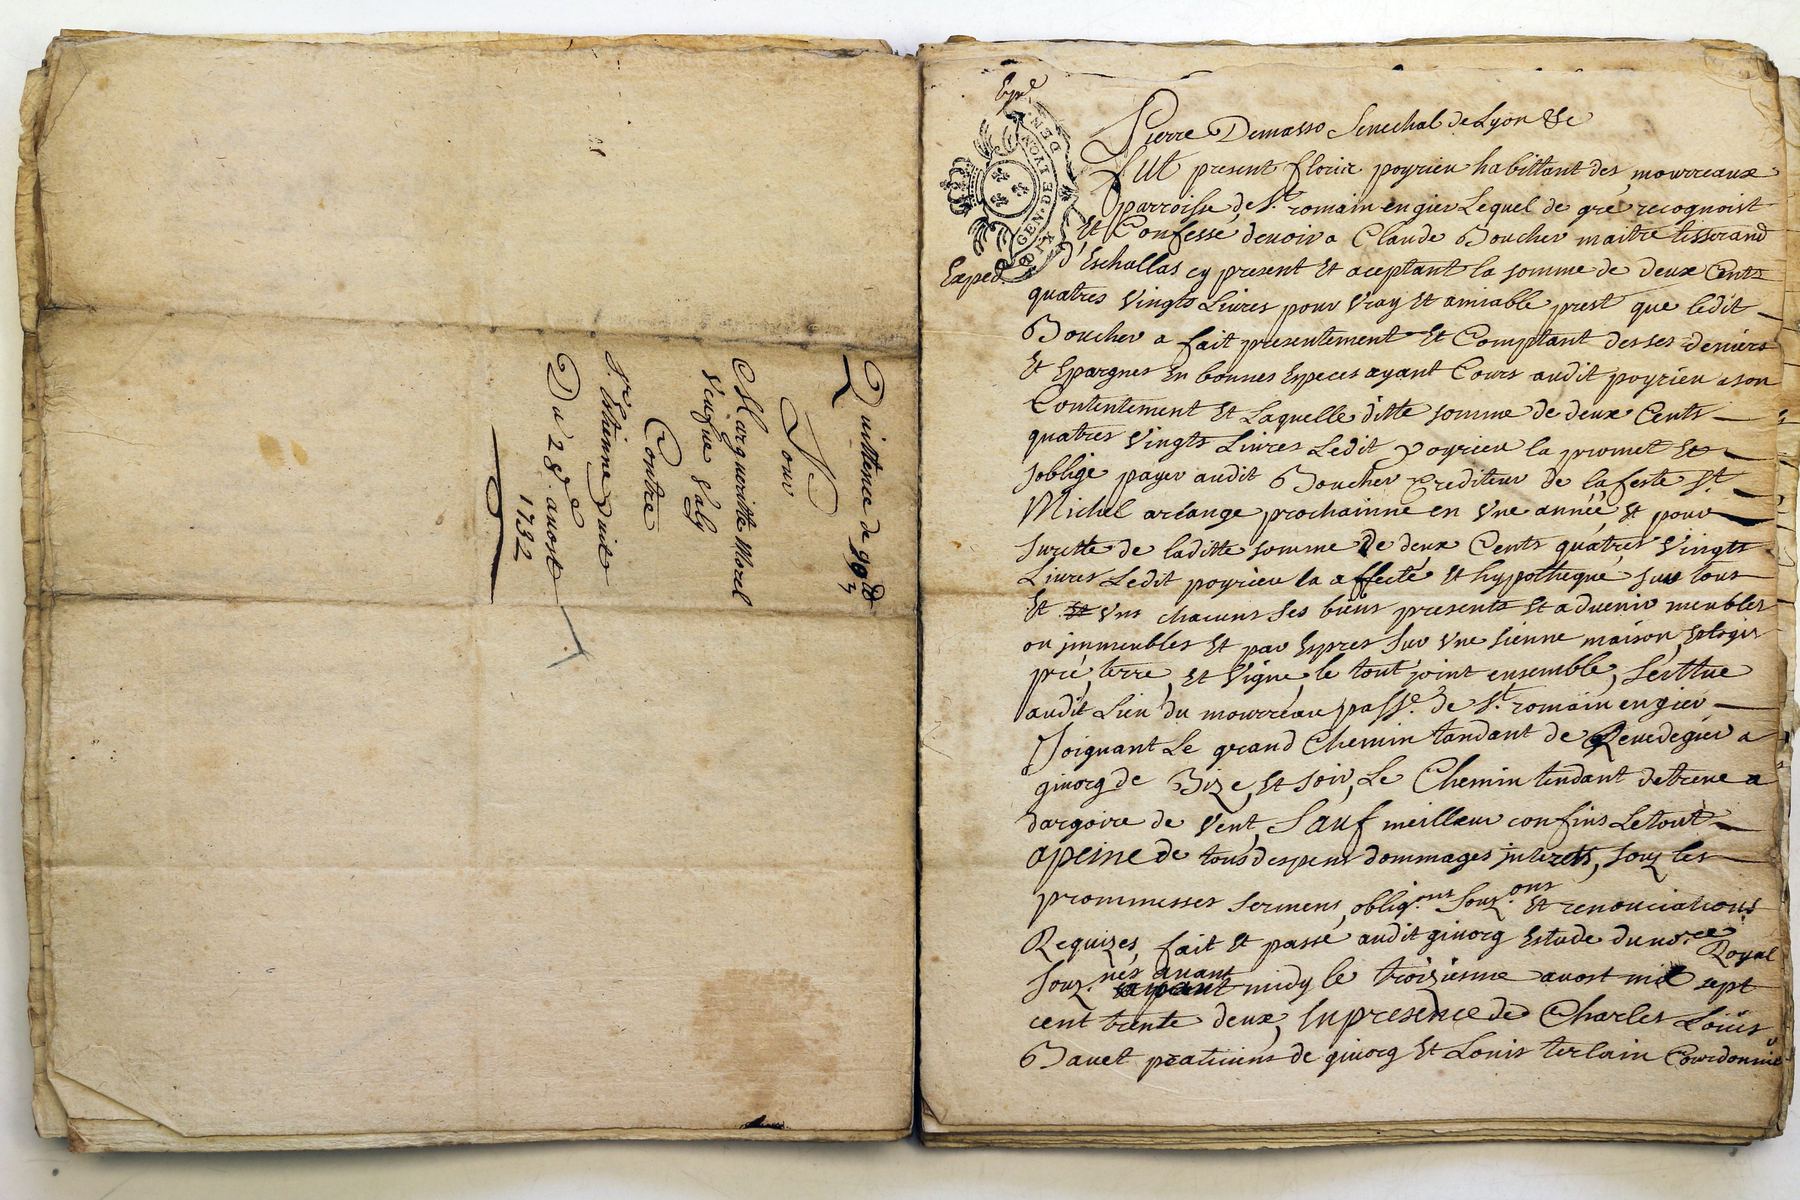 Quittence de 99ᵗᵗ
Pour
Margueritte Morel
Veufve Galy
Contre
Sʳ Estienne Duit
Du 28ᵉ auost
1732
GEN. DE LYON
Expéd.
Pierre Demasso Senechal de Lyon &c
Fut present florie poyrieu habittant des mourreaux
parroisse de Sᵗ romain en gier Lequel de gré recognoist
Et Confesse deuoir a Claude Boucher maitre tisserand
d'Eschallas cy present Et aceptant la somme de deux Cents
quatres Vingts Livres pour Vray Et amiable prest que ledit
Boucher a fait presentement Et Comptant des ses deniers
Et Epargnes En bonnes Especes ayant Cours audit poyrieu a son
Contentement Et Laquelle ditte somme de deux Cents
quatres Vingts Livres Ledit poyrieu la promet Et
soblige payer audit Boucher Crediteur de la feste Sᵗ
Michel arcange prochainne en Vne année Et pour
Surette de laditte somme De deux Cents quatres Vingts
Livres Ledit poyrieu la affecté Et hypothequé sur tous
Et Vns chacuns Ses biens presents Et aduenir meubles
ou jmmeubles Et par Expres Sur Vne Sienne maison,
pré, terre, Et Vigne, le tout joint ensemble, Scittue
audit Lieu du mourreau pass.ᵉ de Sᵗ romain en gier
Joignant Le grand Chemin tandant de Riuedegier a
giuorg de Bize, Et soir, Le Chemin tendant de treue a
dargoire de Vent, Sauf meilleur confins Le tout
apeine de tous despens dommages jnterests, souz les
prommesses Sermens, oblig.ᵒⁿˢ Souz.ᵒⁿˢ Et renonciations
Requizes, fait Et passé audit giuorg Estude du noʳᵉ Royal
Souz.ⁿᵉ́ auant midy le troiziesme auost mil sept
cent trente deux, En presence de Charles Loüis
Bauet praticiens de giuorg Et Louis terlain Courdonnier